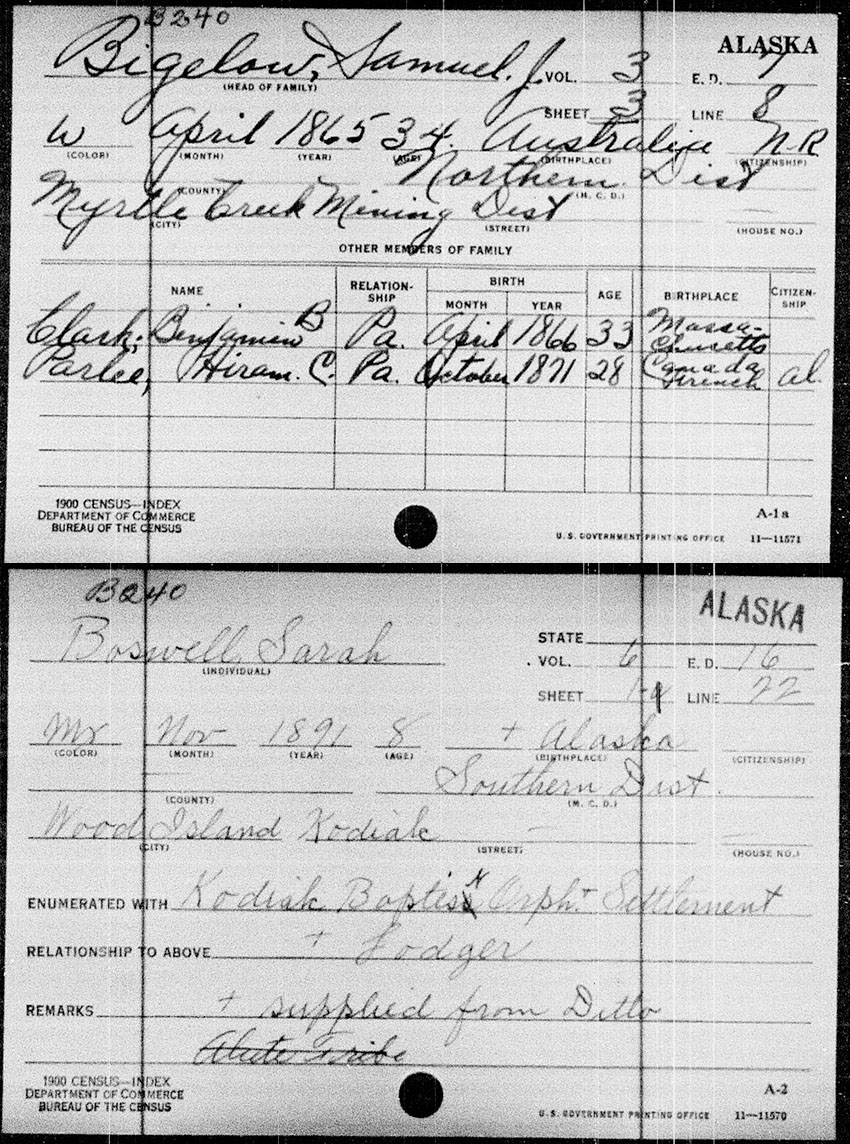 B240
ALASKA
Bigelow, Samuel. J. VOL. 3 E. D. 7
(HEAD OF FAMILY)
SHEET 3 LINE 8
W April 1865 34. Australia N-R
(COLOR) (MONTH) (YEAR) (AGE) (BIRTHPLACE) (CITIZENSHIP)
Northern Dist
(COUNTY) (M. C. D.)
Myrtle Creek Mining Dist —
(CITY) (STREET) (HOUSE NO.)
OTHER MEMBERS OF FAMILY
NAME RELATION-SHIP BIRTH AGE BIRTHPLACE CITIZEN-SHIP
MONTH YEAR
Clark, Benjamin B Pa. April 1866 33 Massa-chusetts
Parlee, Hiram. C. Pa. October 1871 28 Canada French Al.
1900 CENSUS—INDEX
DEPARTMENT OF COMMERCE
BUREAU OF THE CENSUS
A-1a
U. S. GOVERNMENT PRINTING OFFICE 11—11571
B240
ALASKA
Boswell, Sarah STATE
(INDIVIDUAL) VOL. 6 E. D. 16
SHEET 1-a LINE 22
Mx Nov 1891 8 + Alaska
(COLOR) (MONTH) (YEAR) (AGE) (BIRTHPLACE) (CITIZENSHIP)
— Southern Dist.
(COUNTY) (M. C. D.)
Wood Island Kodiak — —
(CITY) (STREET) (HOUSE NO.)
ENUMERATED WITH Kodiak Baptist Orph. Settlement
RELATIONSHIP TO ABOVE + Lodger
REMARKS + supplied from Ditto
Alute Tribe
1900 CENSUS—INDEX
DEPARTMENT OF COMMERCE
BUREAU OF THE CENSUS
A-2
U. S. GOVERNMENT PRINTING OFFICE 11—11570